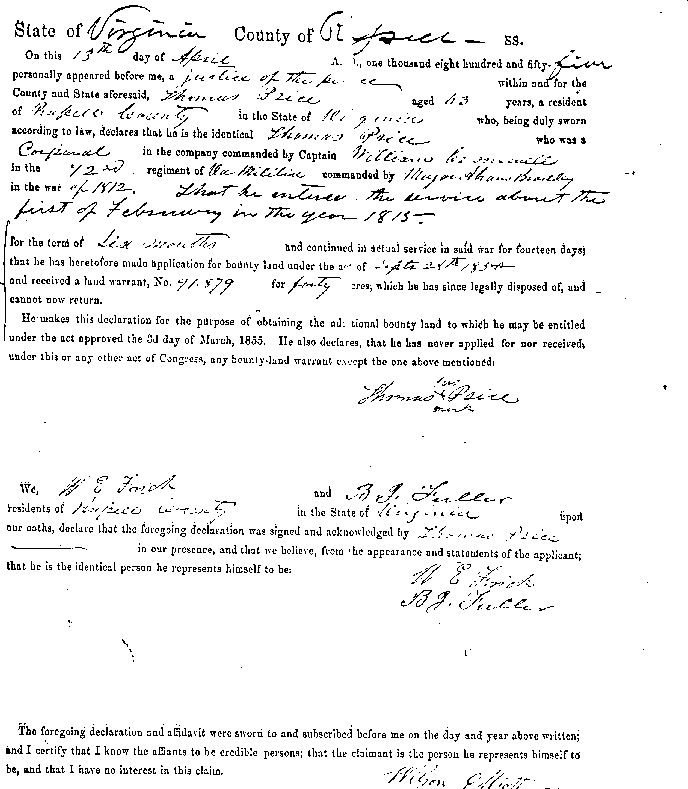 State of Virginia County of Russell SS.
On this 13th day of April A. D., one thousand eight hundred and fifty-five
personally appeared before me, a justice of the peace within and for the
County and State aforesaid, Thomas Price aged 63 years, a resident
of Russell County in the State of Virginia who, being duly sworn
according to law, declares that he is the identical Thomas Price who was a
Corporal in the company commanded by Captain William
in the 72nd. regiment of Va Militia commanded by Major
in the war of 1812. That he entered the service about the
first of February in the year 1815
for the term of Six months and continued in actual service in said war for fourteen days;
that he has heretofore made application for bounty land under the act of Septr 28th 1850
and received a land warrant, No. 41.879 for forty acres; which he has since legally disposed of, and
cannot now return.
He makes this declaration for the purpose of obtaining the additional bounty land to which he may be entitled
under the act approved the 3d day of March, 1855. He also declares, that he has never applied for nor received;
under this or any other act of Congress, any bounty-land warrant except the one above mentioned:
his
Thomas X Price
mark
We, W E Frick and B J. Fuller
residents of Russell County in the State of Virginia upon
our oaths, declare that the foregoing declaration was signed and acknowledged by Thomas Price
in our presence, and that we believe, from the appearance and statements of the applicant;
that he is the identical person he represents himself to be:
W E Frick
B J. Fuller
The foregoing declaration and affidavit were sworn to and subscribed before me on the day and year above written;
and I certify that I know the affiants to be credible persons; that the claimant is the person he represents himself to
be, and that I have no interest in this claim.
Wilson Elliott